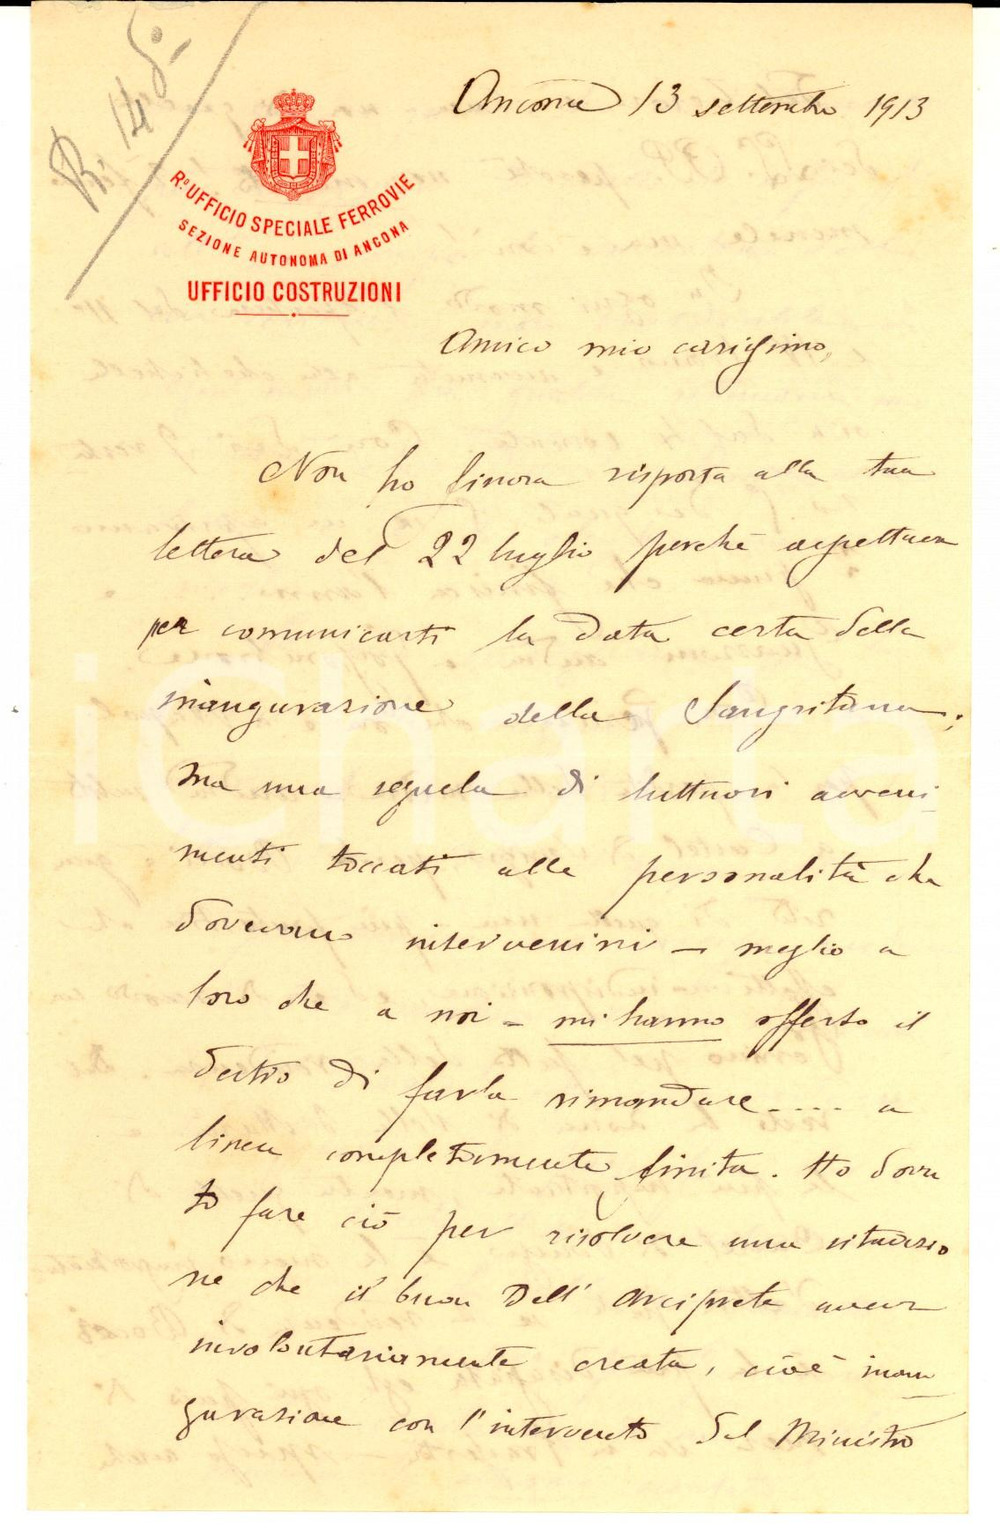 R. 14 8-
Ancona 13 settembre 1913
R.o UFFICIO SPECIALE FERROVIE
SEZIONE AUTONOMA DI ANCONA
UFFICIO COSTRUZIONI
Amico mio carissimo,
Non ho finora risposta alla tua
lettera del 22 luglio perchè aspettava
per comunicarti la data certa della
inaugurazione della Sangritana;
ma una seguela di luttuosi avveni-
menti toccati alle personalità che
dovevano intervenirvi — meglio a
loro che a noi — mi hanno offerto il
destro di farla rimandare.... a
linea completamente finita. Ho dovu
to fare ciò per risolvere una situazio
ne che il buon Dell' Arciprete aveva
involontariamente creata, cioè inau
gurazione con l'intervento del Ministro
iCharta